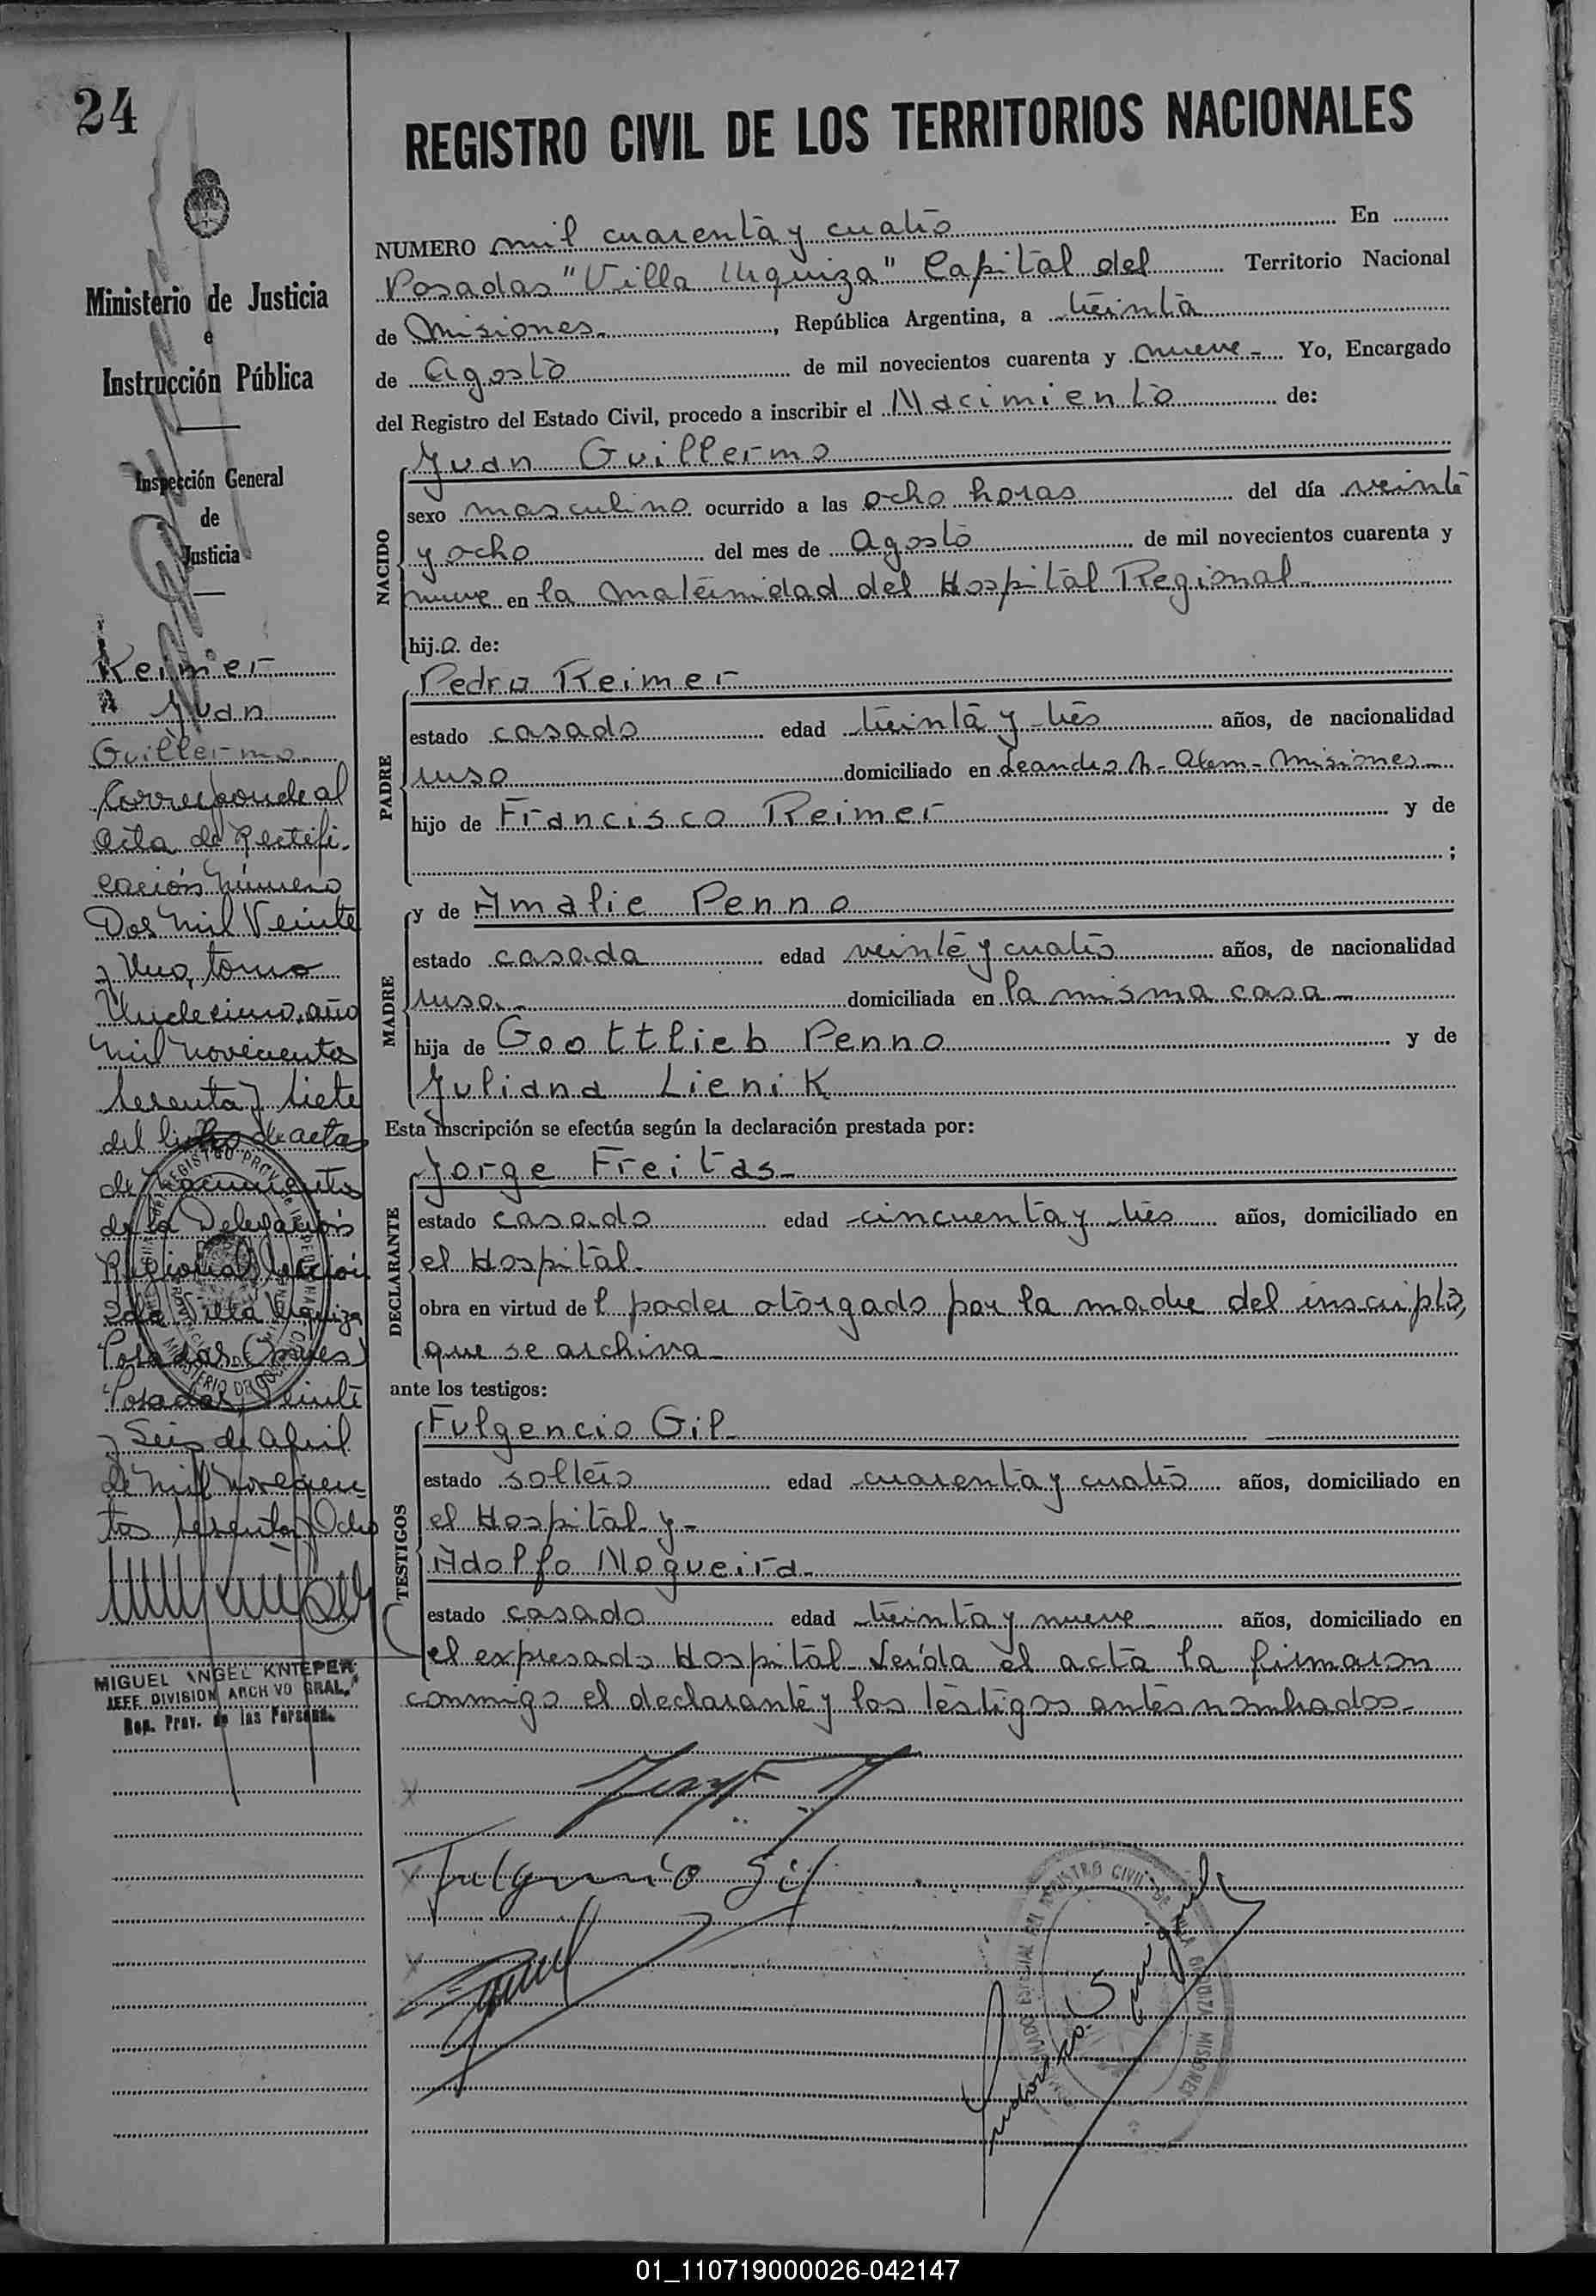 24
Ministerio de Justicia
e
Instrucción Pública
Inspección General
de
Justicia
Reimer
Juan
Guillermo
Corresponde al
Acta de Rectifi-
cación Número
Dos Mil Veinte
y Uno, tomo
Undecimo, año
Mil novecientos
sesenta y siete
del libro de actas
de Nacimientos
de la Delegación
Regional Sección
2da Villa Urquiza
Posadas (Mnes)
Posadas, Veinte
y Seis de Abril
de Mil novecien-
tos sesenta y Ocho
MIGUEL ANGEL KNTEPER
JEFE DIVISION ARCHVO GRAL.
Reg. Prov. de las Personas
REGISTRO CIVIL DE LOS TERRITORIOS NACIONALES
NUMERO mil cuarenta y cuatro En
Posadas "Villa Urquiza" Capital del Territorio Nacional
de Misiones, República Argentina, a treinta
de Agosto de mil novecientos cuarenta y nueve - Yo, Encargado
del Registro del Estado Civil, procedo a inscribir el Nacimiento de:
Juan Guillermo
NACIDO
sexo masculino ocurrido a las ocho horas del día veinte
y ocho del mes de Agosto de mil novecientos cuarenta y
nueve en la Maternidad del Hospital Regional
hij.o. de:
Pedro Reimer
PADRE
estado casado edad treinta y tres años, de nacionalidad
ruso domiciliado en Leandro N. Alem - Misiones
hijo de Francisco Reimer y de
;
y de Amalie Penno
MADRE
estado casada edad veinte y cuatro años, de nacionalidad
rusa domiciliada en la misma casa
hija de Goottlieb Penno y de
Juliana Lienik
Esta inscripción se efectúa según la declaración prestada por:
Jorge Freitas
DECLARANTE
estado casado edad cincuenta y tres años, domiciliado en
el Hospital
obra en virtud del poder otorgado por la madre del inscripto,
que se archiva
ante los testigos:
Fulgencio Gil
TESTIGOS
estado soltero edad cuarenta y cuatro años, domiciliado en
el Hospital y
Adolfo Nogueira
estado casado edad treinta y nueve años, domiciliado en
el expresado Hospital Leída el acta la firmaron
conmigo el declarante y los testigos antes nombrados
Fulgencio Gil
01_110719000026-042147